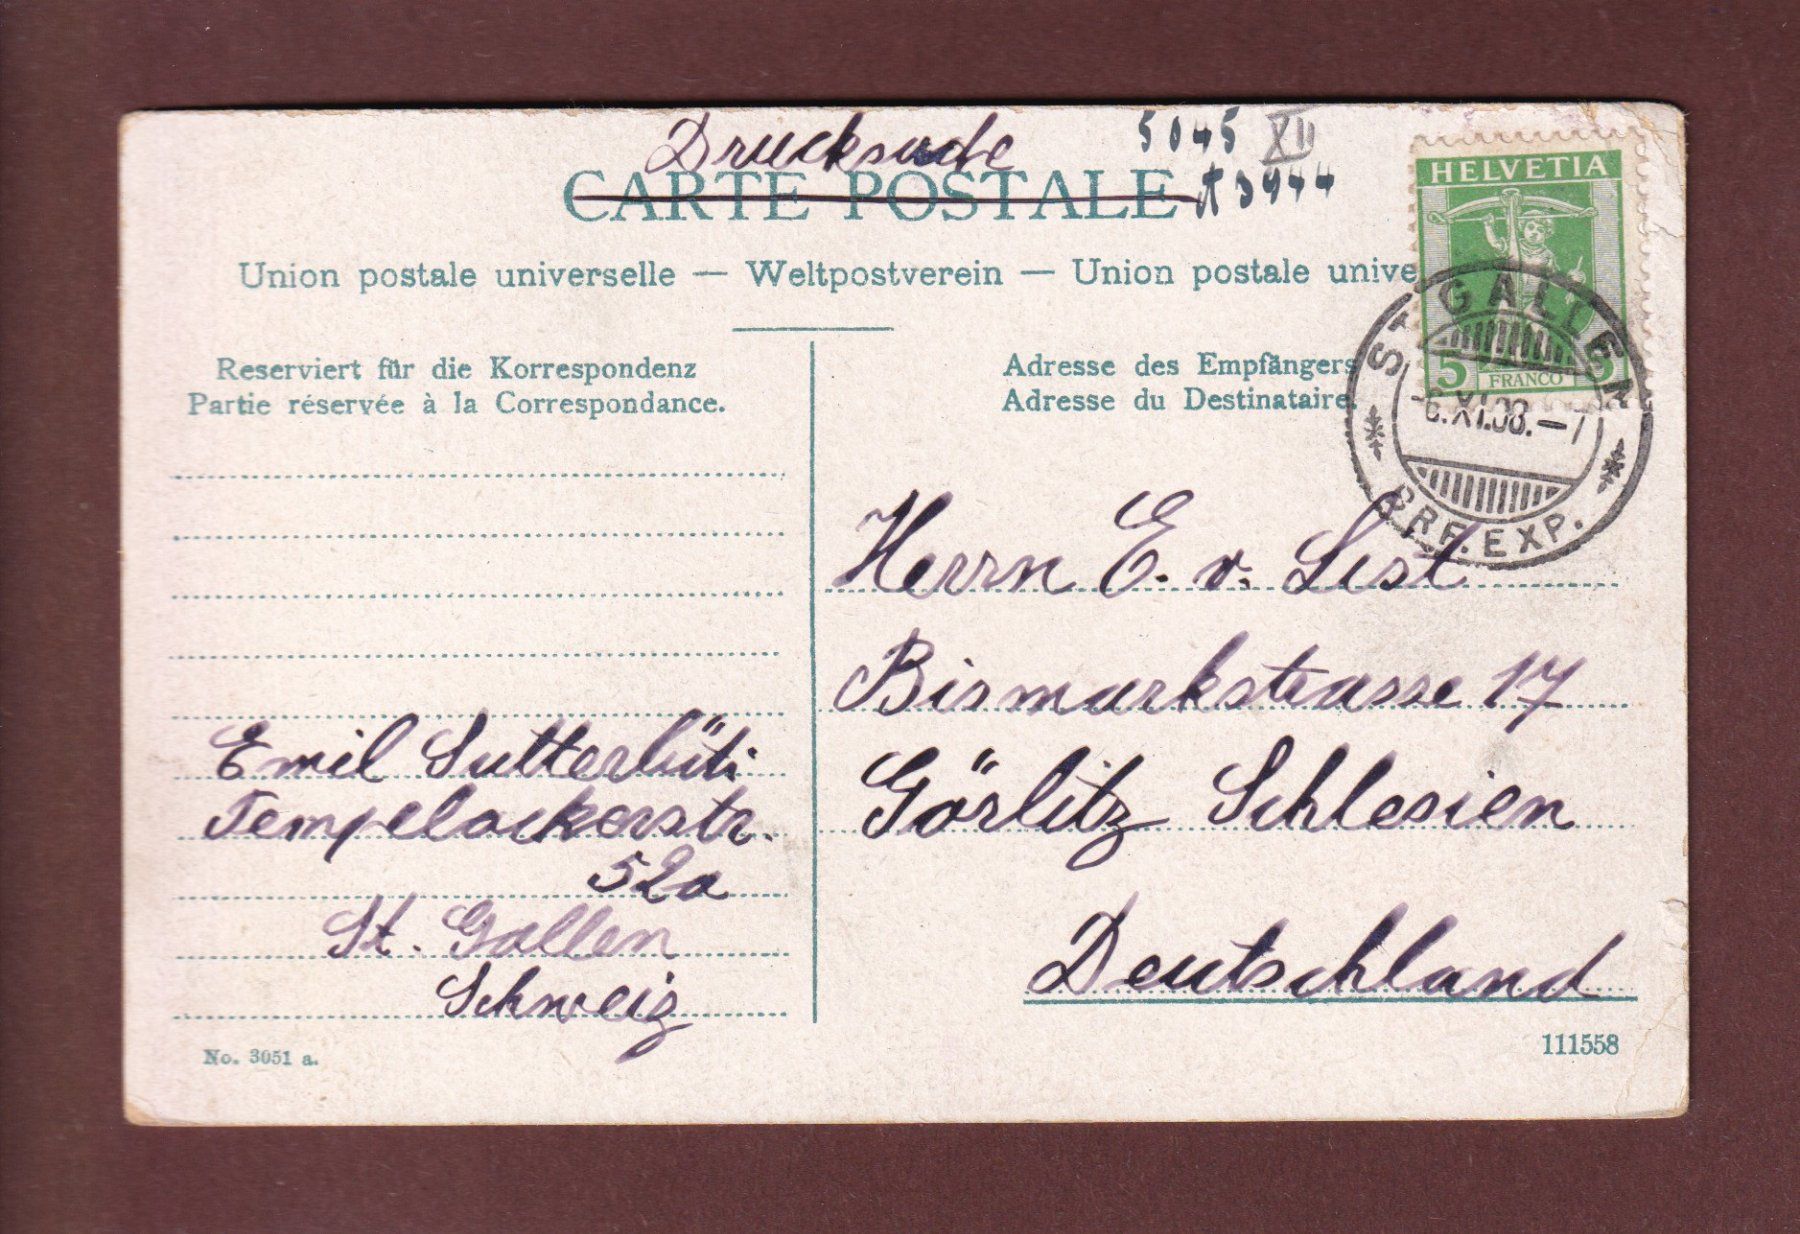 Drucksache
5045 XII
CARTE POSTALE
HELVETIA
Union postale universelle — Weltpostverein — Union postale unive
5 FRANCO 5
ST. GALLEN
-6.XI.08.-7
BRF. EXP.
Reserviert für die Korrespondenz
Partie réservée à la Correspondance.
Adresse des Empfängers
Adresse du Destinataire.
Herrn E. v. List
Bismarkstrasse 17
Görlitz Schlesien
Deutschland
Emil Sutterlüti
Tempelackerstr.
52a
St. Gallen
Schweiz
No. 3051 a.
111558